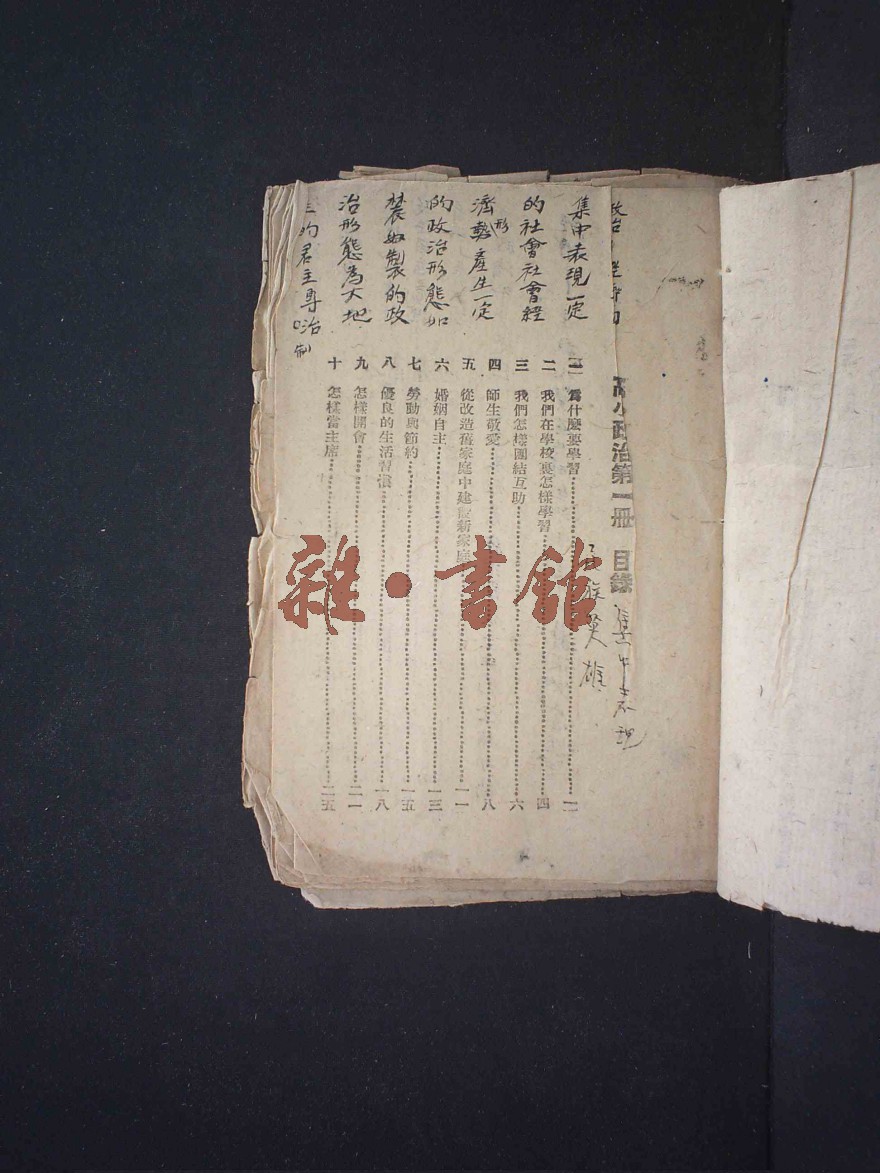 高小政治第一冊 目錄
一 爲什麼要學習 一
二 我們在學校裏怎樣學習 四
三 我們怎樣團結互助 六
四 師生敬愛 八
五 從改造舊家庭中建設新家庭 一一
六 婚姻自主 一三
七 勞動與節約 一五
八 優良的生活習慣 一八
九 怎樣開會 二一
十 怎樣當主席 二五
政治
集中表現一定
的社會社會經
濟形勢產生一定
的政治形態如
農奴製的政
治形態為大地
主的君主專治
制
英雄
集中表現
雜·書館